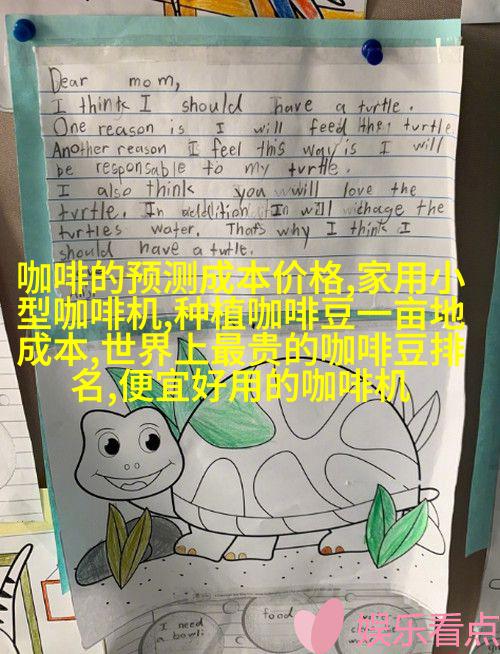 Dear mom,
I think I should have a turtle.
One reason is I will feed the turtle.
Another reason I feel this way is I will
be responsable to my turtle.
I also think you will love the
turtle. In addition I will chage the
turtles water. Thats why I think I
should have a turtle.
咖啡的预测成本价格,家用小
型咖啡机,种植咖啡豆一亩地
成本,世界上最贵的咖啡豆排
名,便宜好用的咖啡机
I need
a bowl
food
娱乐看点